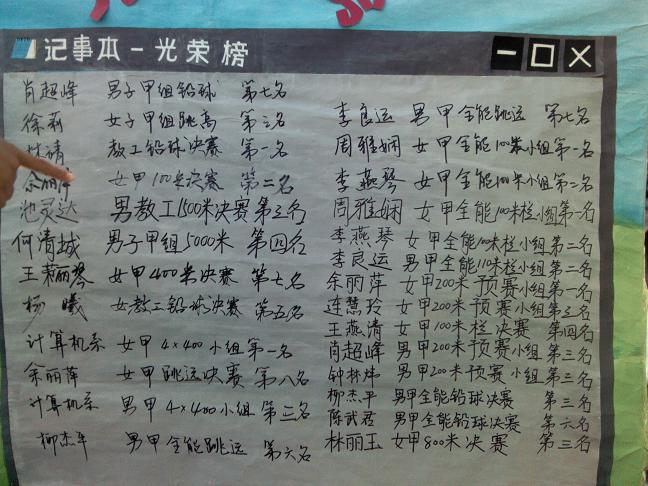 记事本-光荣榜
肖超峰 男子甲组铅球 第七名
徐莉 女子甲组跳高 第三名
林靖 教工铅球决赛 第一名
余丽萍 女甲100米决赛 第二名
池灵达 男教工1500米决赛第三名
何清城 男子甲组5000米 第四名
王菊琴 女甲400米决赛 第七名
杨曦 女教工铅球决赛 第五名
计算机系 女甲4×400小组第一名
余丽萍 女甲跳远决赛 第八名
计算机系 男甲4×400小组 第三名
柳杰平 男甲全能跳远 第六名
李良运 男甲全能跳远 第七名
周雅娴 女甲全能100米小组第一名
李燕琴 女甲全能100米小组第二名
周雅娴 女甲全能100米栏小组第一名
李燕琴 女甲全能100米栏小组第二名
李良运 男甲全能110米栏小组第二名
余丽萍 女甲200米预赛小组第一名
连慧玲 女甲200米预赛小组第三名
王燕清 女甲100米栏决赛 第四名
肖超峰 男甲200米预赛小组第三名
钟林炜 男甲200米预赛小组 第三名
柳杰平 男甲全能铅球决赛 第三名
陈武君 男甲全能铅球决赛 第六名
林丽玉 女甲800米决赛 第三名